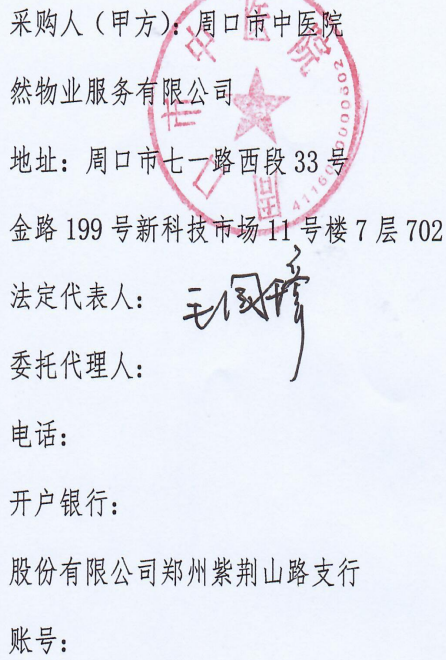 采购人（甲方）：周口市中医院
然物业服务有限公司
地址：周口市七一路西段 33 号
金路 199 号新科技市场 11 号楼 7 层 702
法定代表人：
委托代理人：
电话：
开户银行：
股份有限公司郑州紫荆山路支行
账号：
周口市中医院